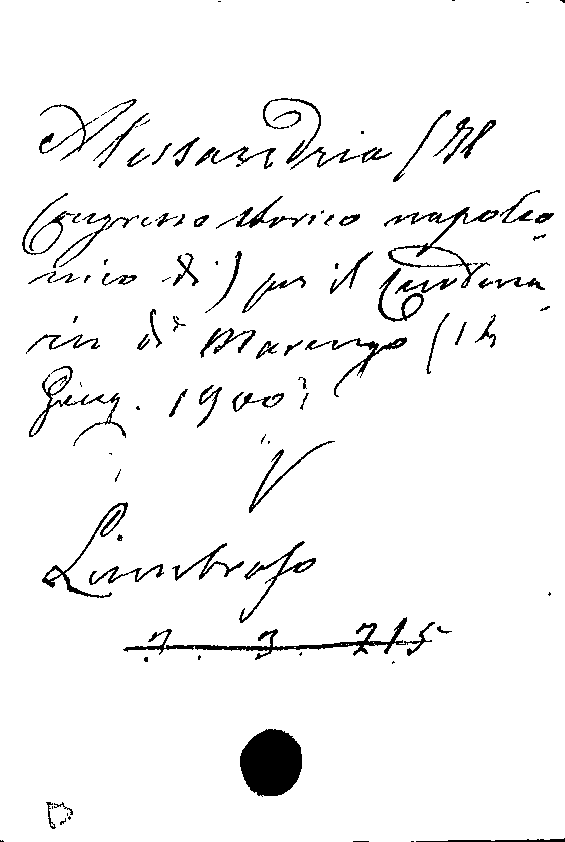 Alessandria (Il
Congresso storico napoleo-
nico di) per il Centena-
rio di Marengo (14
Giug. 1900)
V
Lumbroso
3. 715
B